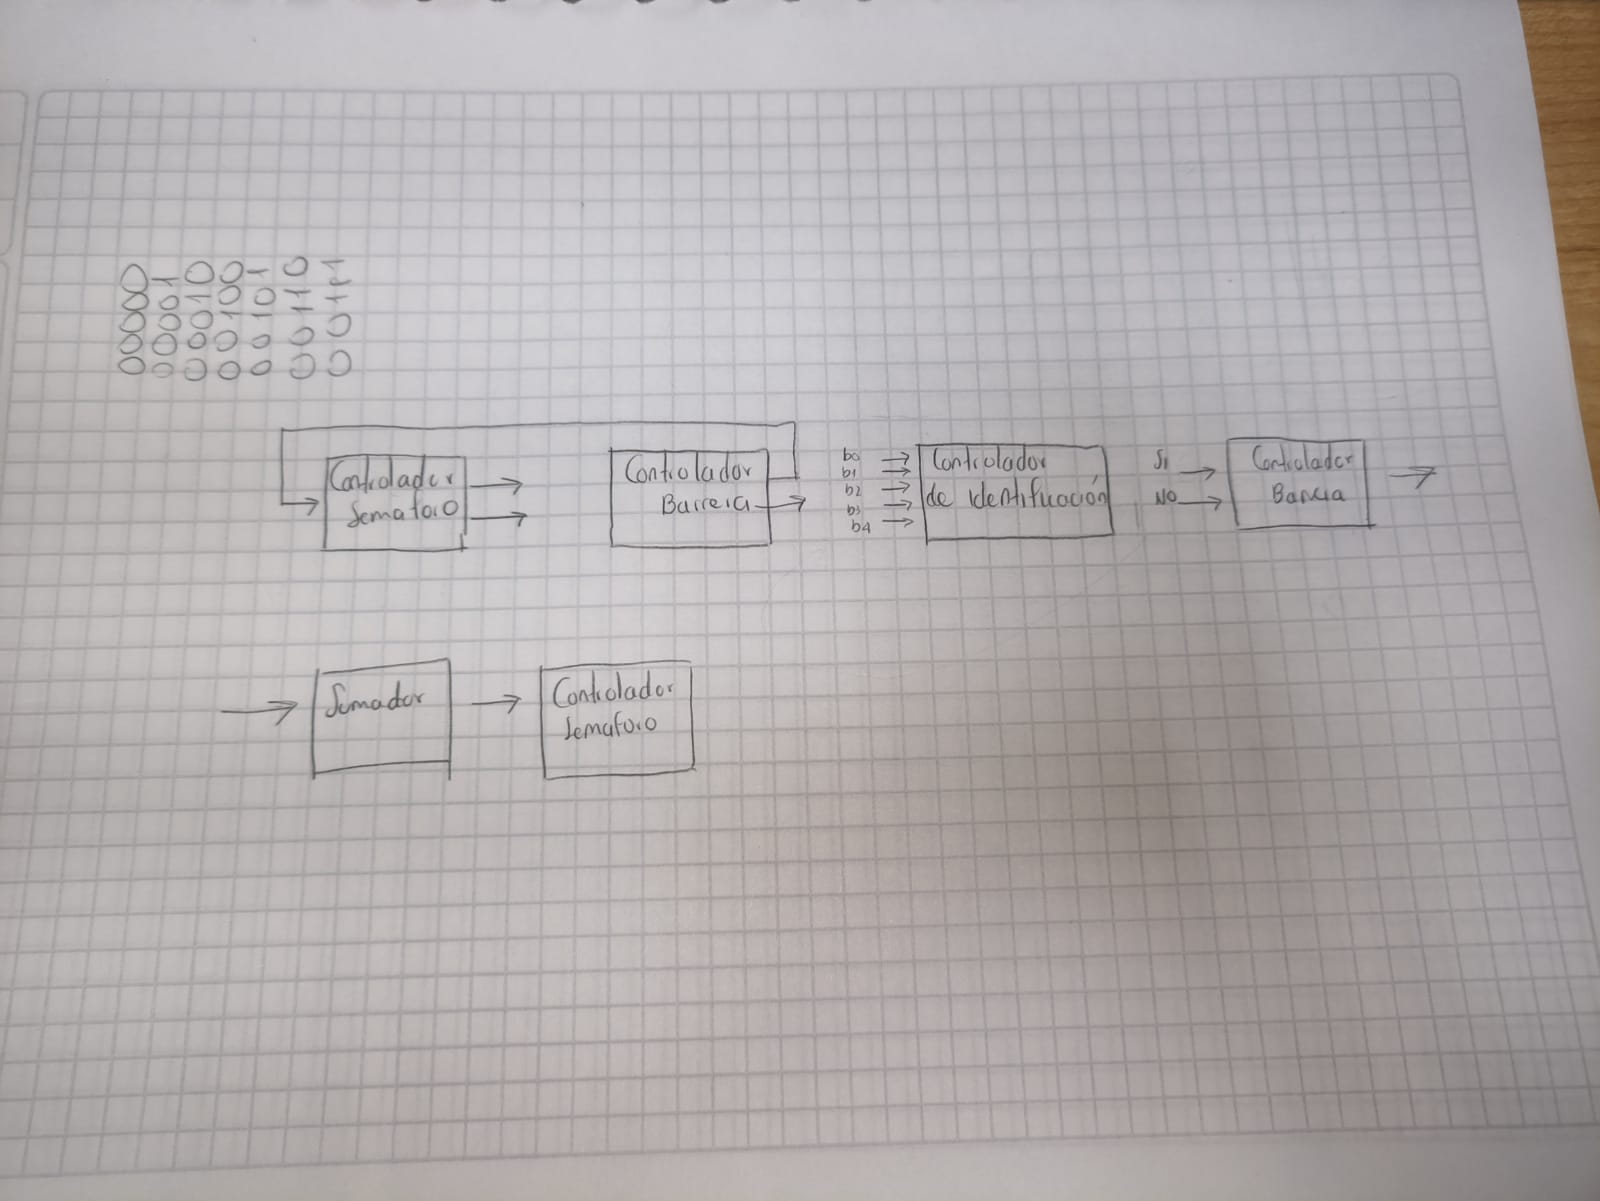 0 1 0 0 1 0 1
0 0 1 0 0 1 1
0 0 0 1 1 1 1
0 0 0 0 0 0 0
0 0 0 0 0 0 0
Controlador
Semaforo
Controlador
Barrera
b0
b1
b2
b3
b4
Controlador
de identificación
Si
NO
Controlador
Barrera
Sumador
Controlador
Semaforo